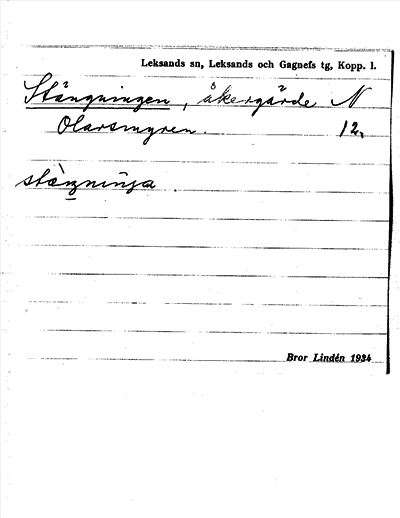 Leksands sn, Leksands och Gagnefs tg, Kopp. l.
Stängningen, åkergärde N
Olarsmyren. 12.
stàŋniŋa
Bror Lindén 1934